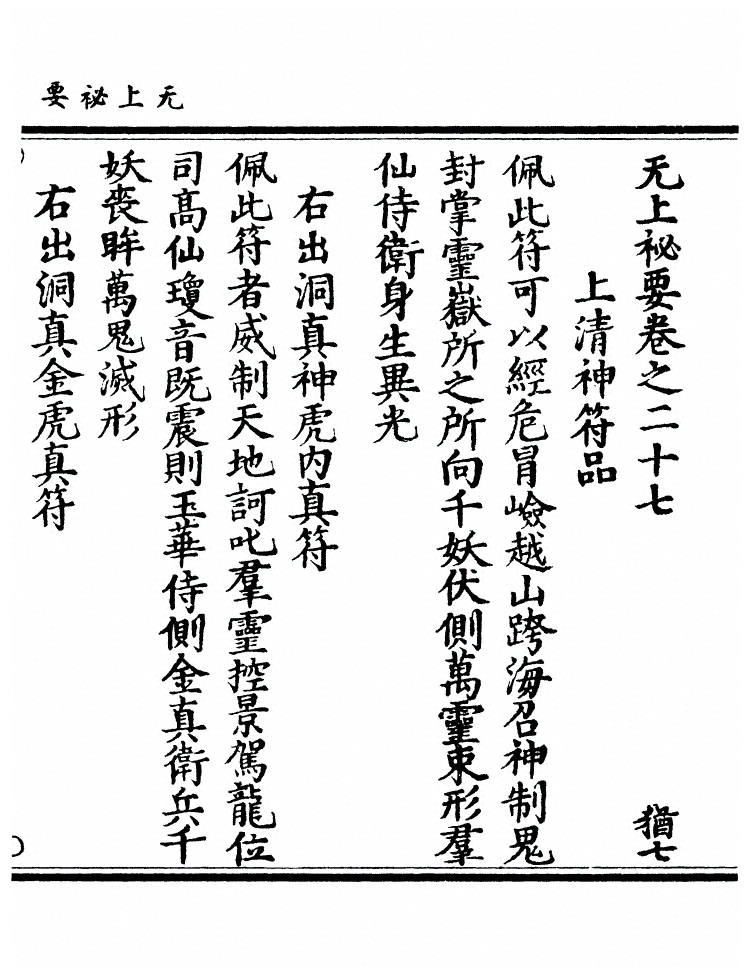 无上祕要
无上祕要卷之二十七
猶七
上清神符品
佩此符可以經危冒嶮越山跨海召神制鬼
封掌靈嶽所之所向千妖伏側萬靈束形羣
仙侍衛身生異光
右出洞真神虎内真符
佩此符者威制天地訶叱羣靈控景駕龍位
司高仙瓊音既震則玉華侍側金真衛兵千
妖喪眸萬鬼滅形
右出洞真金虎真符